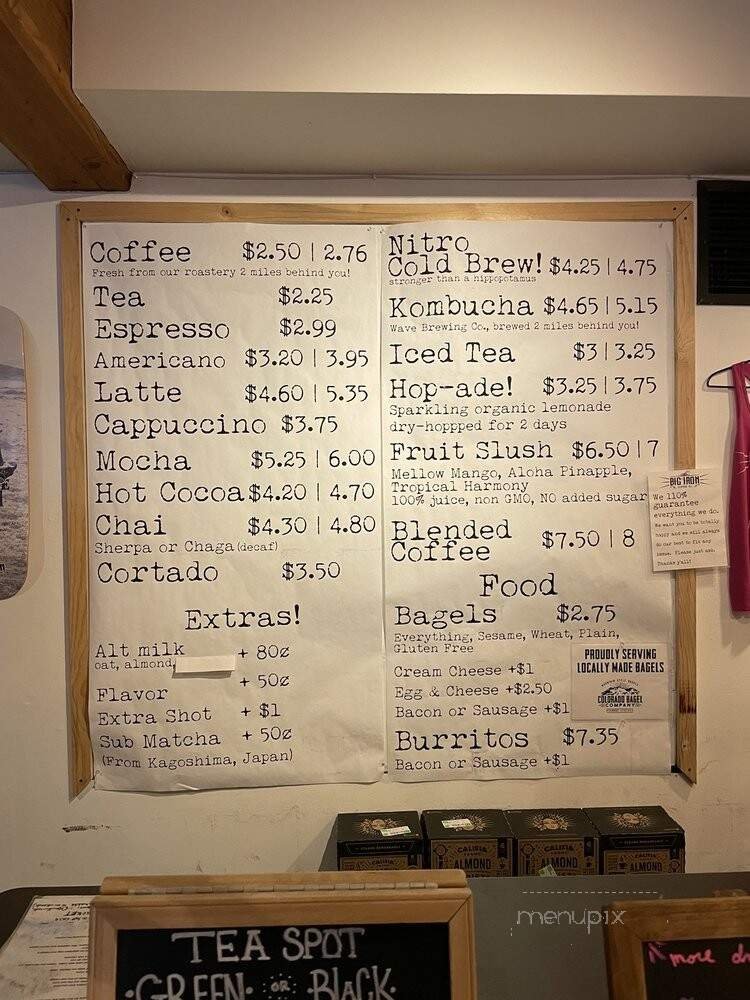 Coffee $2.50 | 2.76
Fresh from our roastery 2 miles behind you!
Tea $2.25
Espresso $2.99
Americano $3.20 | 3.95
Latte $4.60 | 5.35
Cappuccino $3.75
Mocha $5.25 | 6.00
Hot Cocoa $4.20 | 4.70
Chai $4.30 | 4.80
Sherpa or Chaga (decaf)
Cortado $3.50
Extras!
Alt milk + 80¢
oat, almond,
Flavor + 50¢
Extra Shot + $1
Sub Matcha + 50¢
(From Kagoshima, Japan)
Nitro
Cold Brew! $4.25 | 4.75
stronger than a hippopotamus
Kombucha $4.65 | 5.15
Wave Brewing Co., brewed 2 miles behind you!
Iced Tea $3 | 3.25
Hop-ade! $3.25 | 3.75
Sparkling organic lemonade
dry-hoppped for 2 days
Fruit Slush $6.50 | 7
Mellow Mango, Aloha Pinapple,
Tropical Harmony
100% juice, non GMO, NO added sugar
Blended
Coffee $7.50 | 8
Food
Bagels $2.75
Everything, Sesame, Wheat, Plain,
Gluten Free
Cream Cheese +$1
Egg & Cheese +$2.50
Bacon or Sausage +$1
Burritos $7.35
Bacon or Sausage +$1
PROUDLY SERVING
LOCALLY MADE BAGELS
COLORADO BAGEL
COMPANY
BIG IRON
We 110%
guarantee
everything we do.
We want you to be totally
happy and we will always
do our best to fix any
issue. Please just ask.
Thanks y'all!
CALIFIA
ALMOND
CALIFIA
ALMOND
CALIFIA
ALMOND
TEA SPOT
GREEN · OR · BLACK
more
menupix